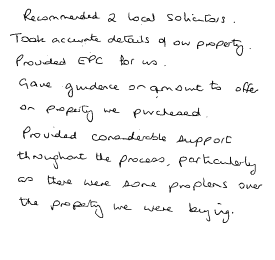 Recommended 2 local solicitors.
Took accurate details of our property.
Provided EPC for us.
Gave guidance on amount to offer
on property we purchased.
Provided considerable support
throughout the process, particularly
as there were some problems over
the property we were buying.